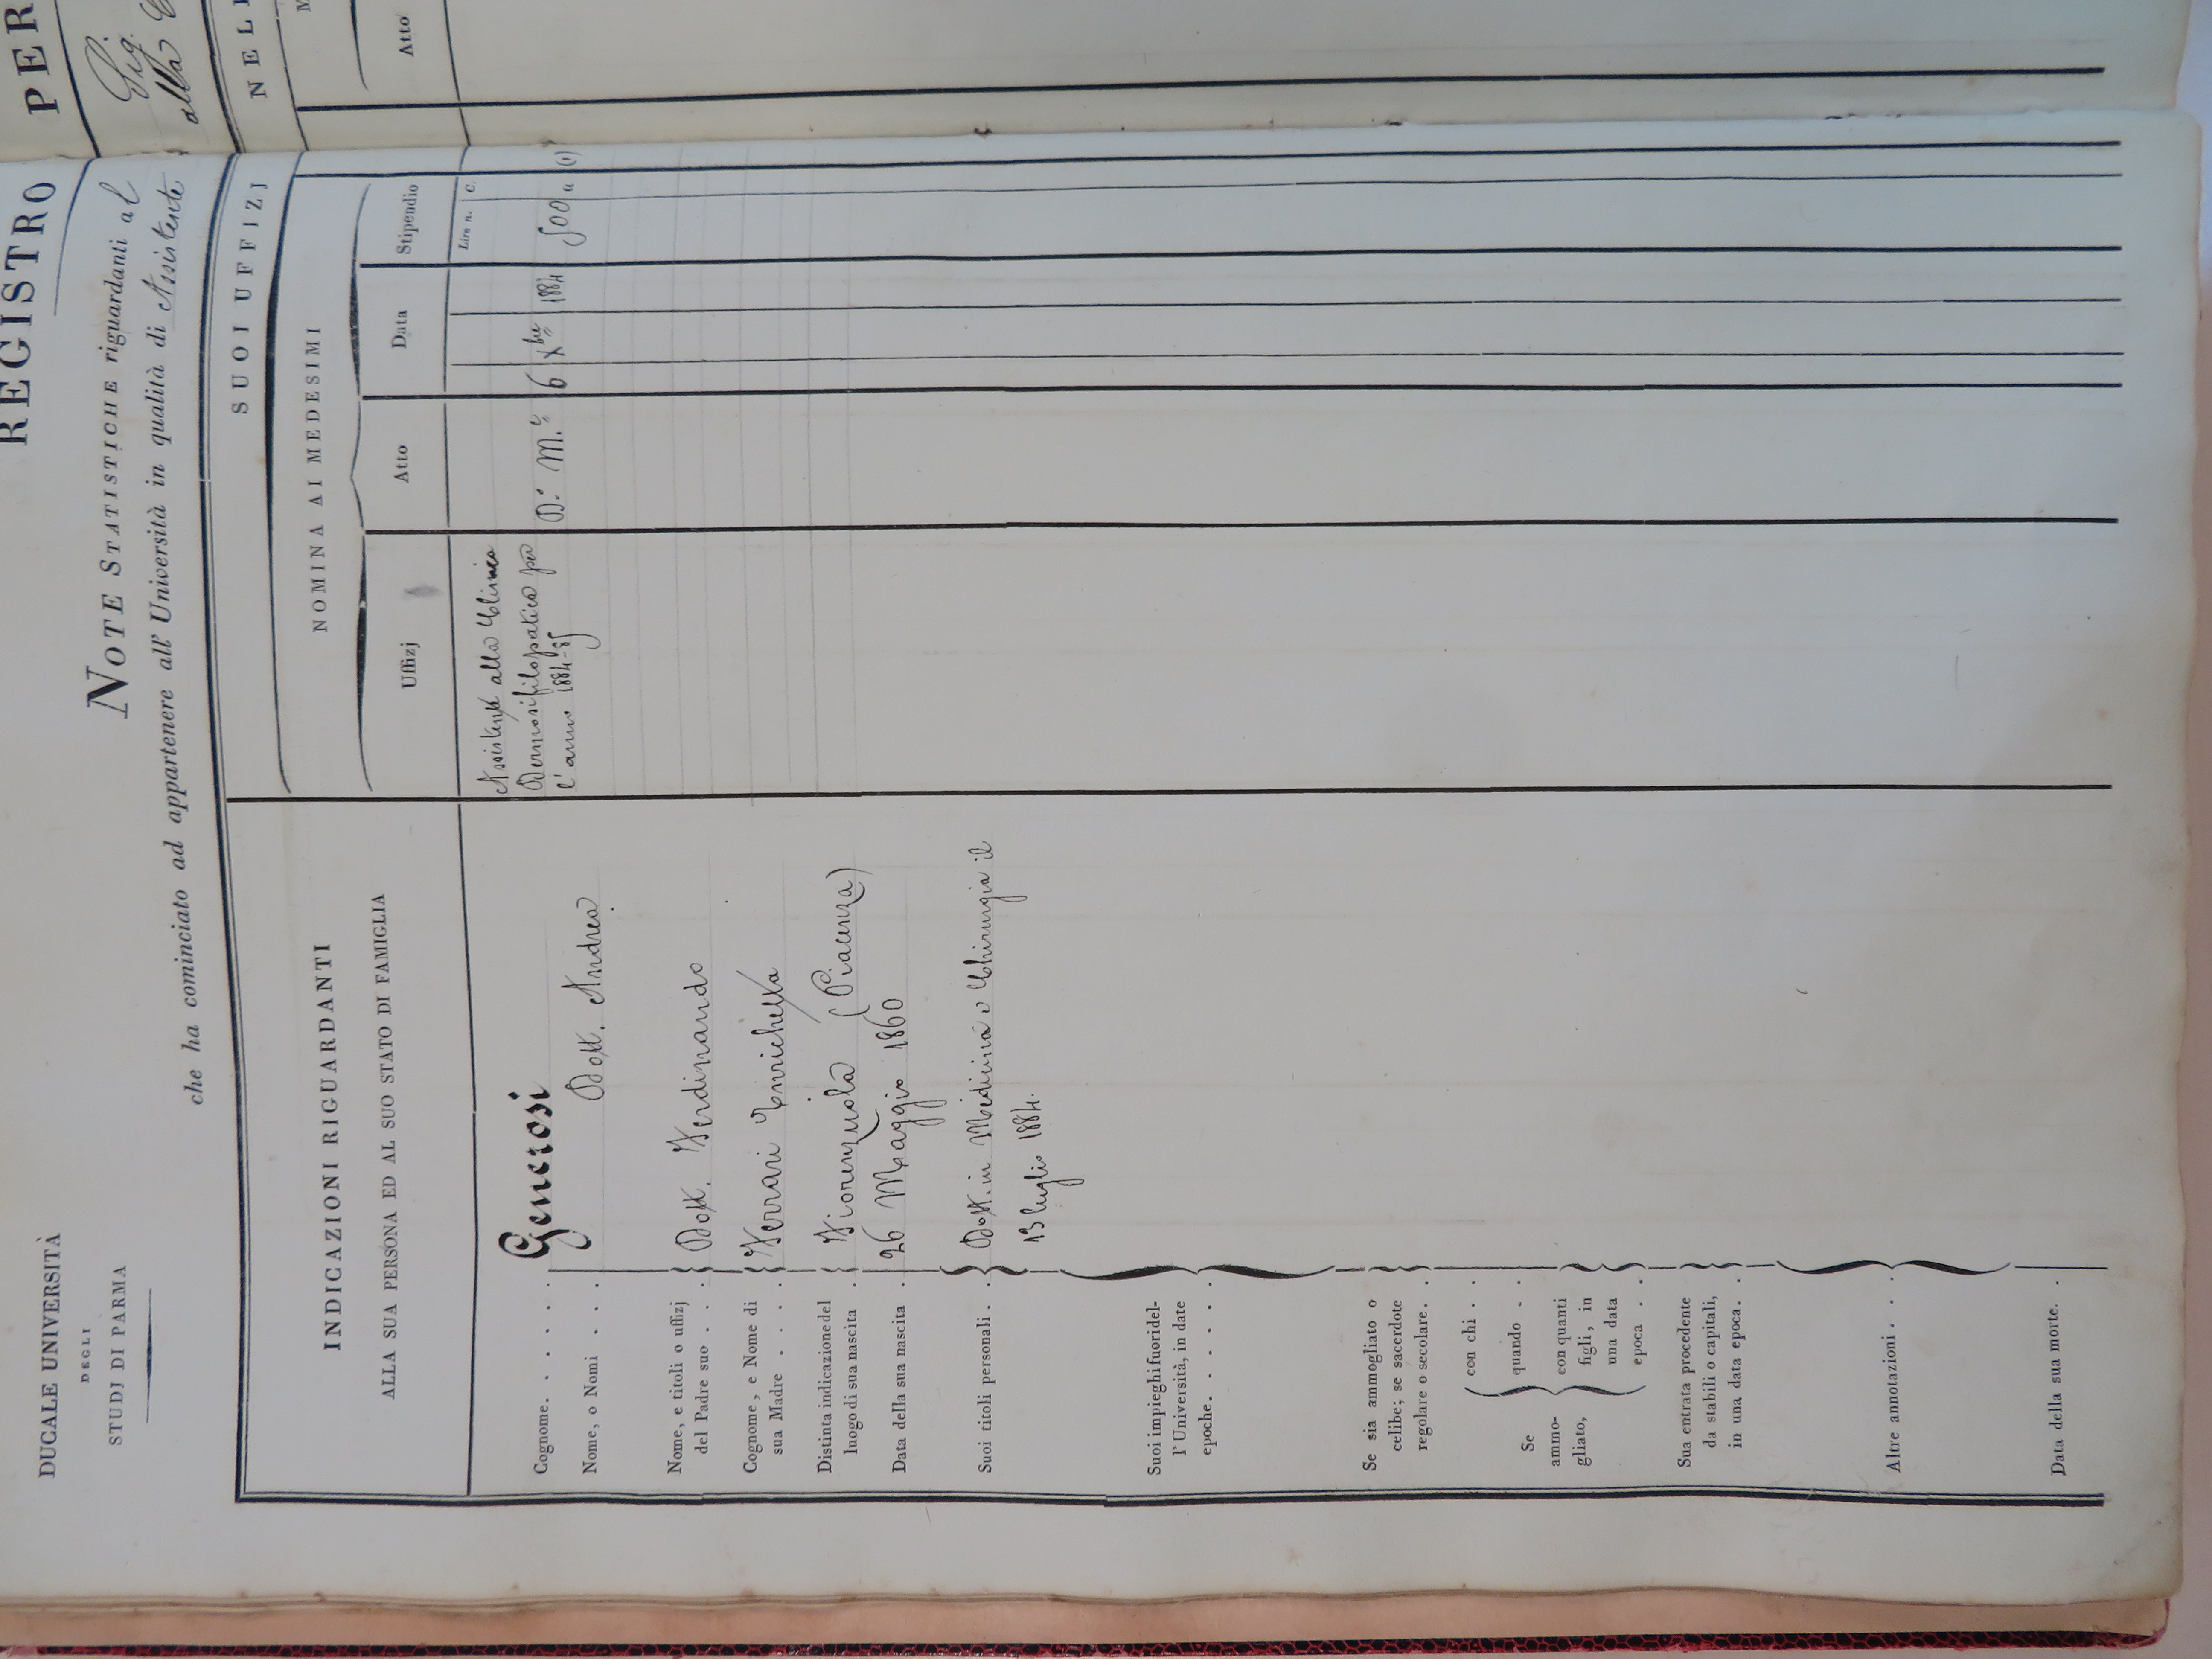 DUCALE UNIVERSITÀ
DEGLI
STUDJ DI PARMA
REGISTRO PER
NOTE STATISTICHE riguardanti al Sig.
che ha cominciato ad appartenere all' Università in qualità di Assistente alla
INDICAZIONI RIGUARDANTI
ALLA SUA PERSONA ED AL SUO STATO DI FAMIGLIA
Cognome. . . . . . Generosi
Nome, o Nomi . . . . Dott. Andrea
Nome, e titoli o uffizj
del Padre suo . . . Dott. Ferdinando
Cognome, e Nome di
sua Madre . . . . Ferrari Enrichetta
Distinta indicazione del
luogo di sua nascita . Fiorenzuola (Piacenza)
Data della sua nascita . 26 Maggio 1860
Suoi titoli personali . . Dott. in Medicina e Chirurgia il
13 luglio 1884.
Suoi impieghi fuori del-
l' Università, in date
epoche. . . . . . .
Se sia ammogliato o
celibe; se sacerdote
regolare o secolare. .
Se
ammo-
gliato,
con chi . .
quando . .
con quanti
figli, in
una data
epoca . .
Sua entrata procedente
da stabili o capitali,
in una data epoca. .
Altre annotazioni . . .
Data della sua morte. .
SUOI UFFIZJ
NOMINA AI MEDESIMI
Uffizj
Atto
Data
Stipendio
Lire n. C.
Assistente alla Clinica
Dermosifilopatica per
l' anno 1884-85
D.º M.le
6 Xbre 1884
500 " (1)
NEL
M
Atto